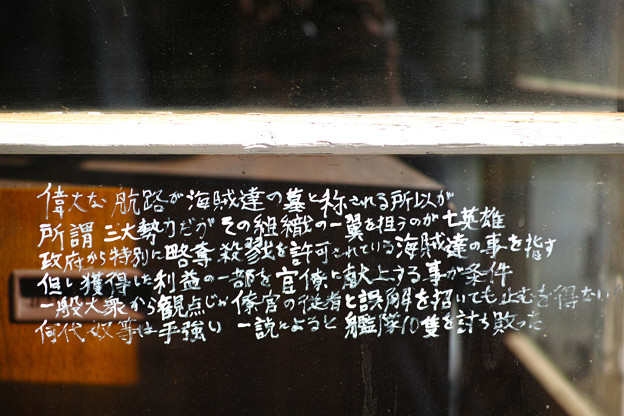 偉大な航路が海賊達の墓と称される所以が
所謂三大勢力だがその組織の一翼を担うのが七英雄
政府から特別に略奪殺戮を許可されている海賊達の事を指す
但し獲得した利益の一部を官僚に献上する事が条件
一般大衆から観点じゃ傣官の従者と誤解を招いても止むを得ない
何代奴等は手強い 一説によると艦隊10隻を討ち敗った